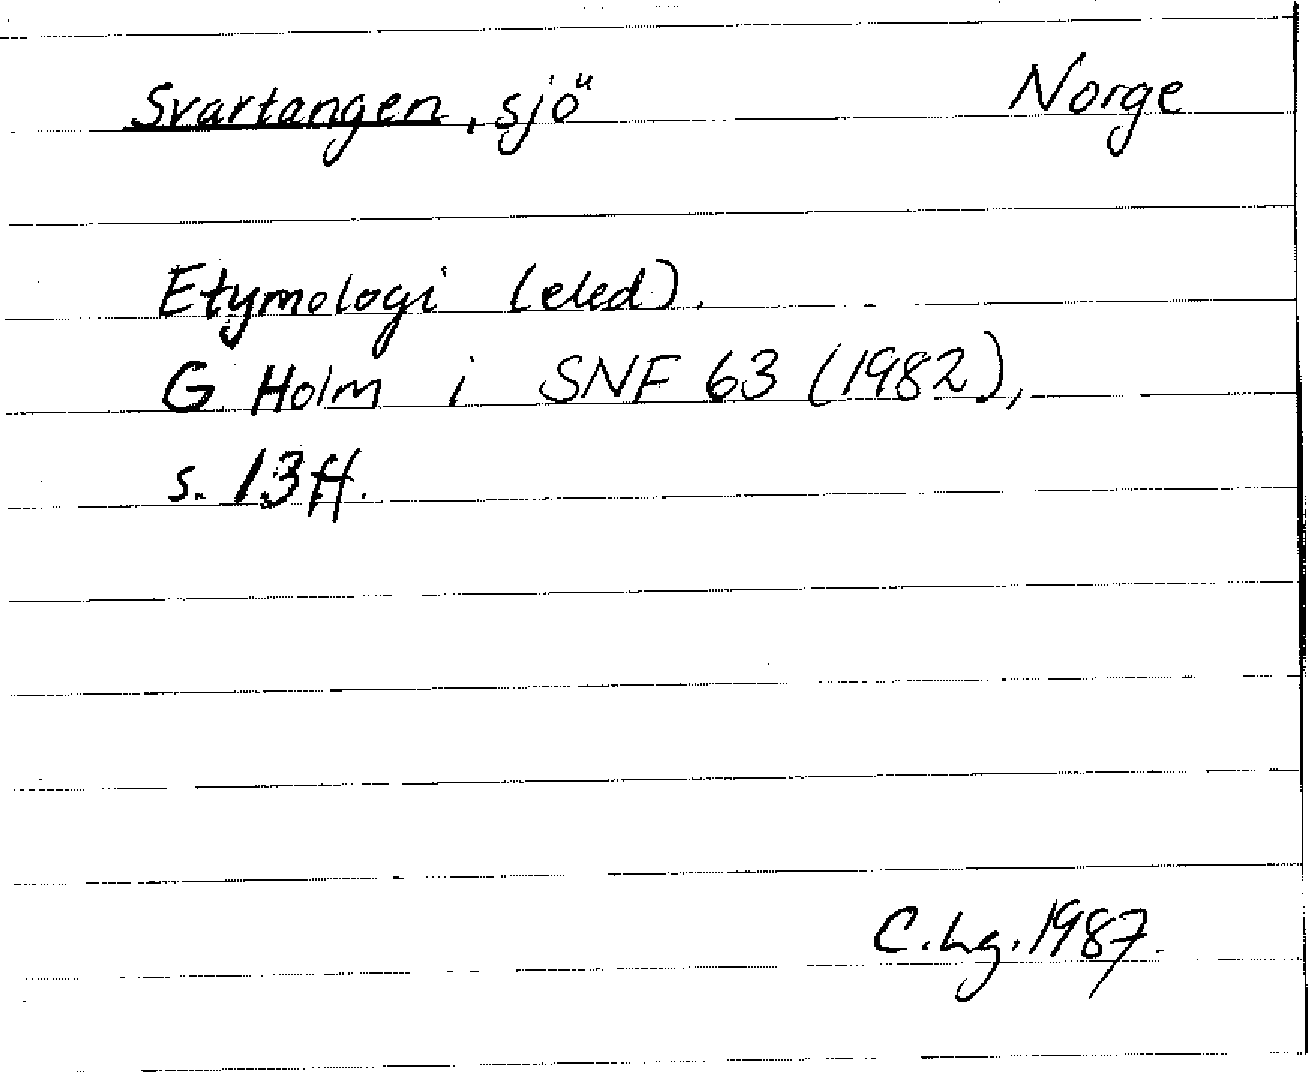 Svartangen, sjö Norge
Etymologi (eled).
G Holm i SNF 63 (1982),
s. 13 ff.
C. Lg. 1987.